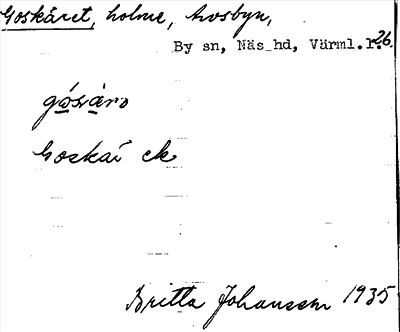 Goskäret, holme, Avosbyn,
By sn, Näs hd, Värml. l. 26.
Goskaí ek
Britta Johansson 1935